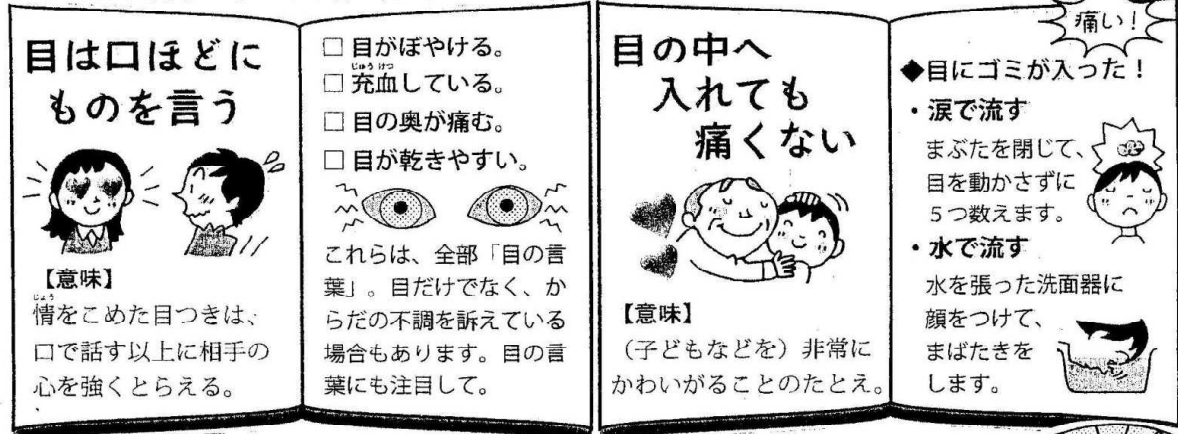 目は口ほどに
ものを言う
【意味】
情をこめた目つきは、
口で話す以上に相手の
心を強くとらえる。
□ 目がぼやける。
□ 充血している。
□ 目の奥が痛む。
□ 目が乾きやすい。
これらは、全部「目の言
葉」。目だけでなく、か
らだの不調を訴えている
場合もあります。目の言
葉にも注目して。
目の中へ
入れても
痛くない
【意味】
（子どもなどを）非常に
かわいがることのたとえ。
痛い！
◆目にゴミが入った！
・涙で流す
まぶたを閉じて、
目を動かさずに
５つ数えます。
・水で流す
水を張った洗面器に
顔をつけて、
まばたきを
します。